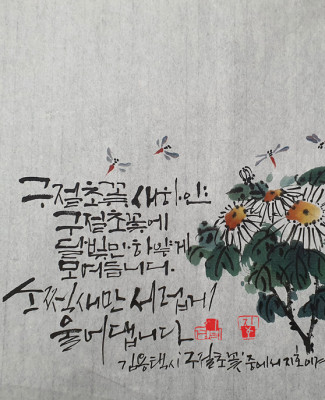 구절초꽃 새하얀
구절초꽃에
달빛만 하얗게
모여듭니다.
소쩍새만 서럽게
울어댑니다
김용택 시 '구절초꽃' 중에서 지호